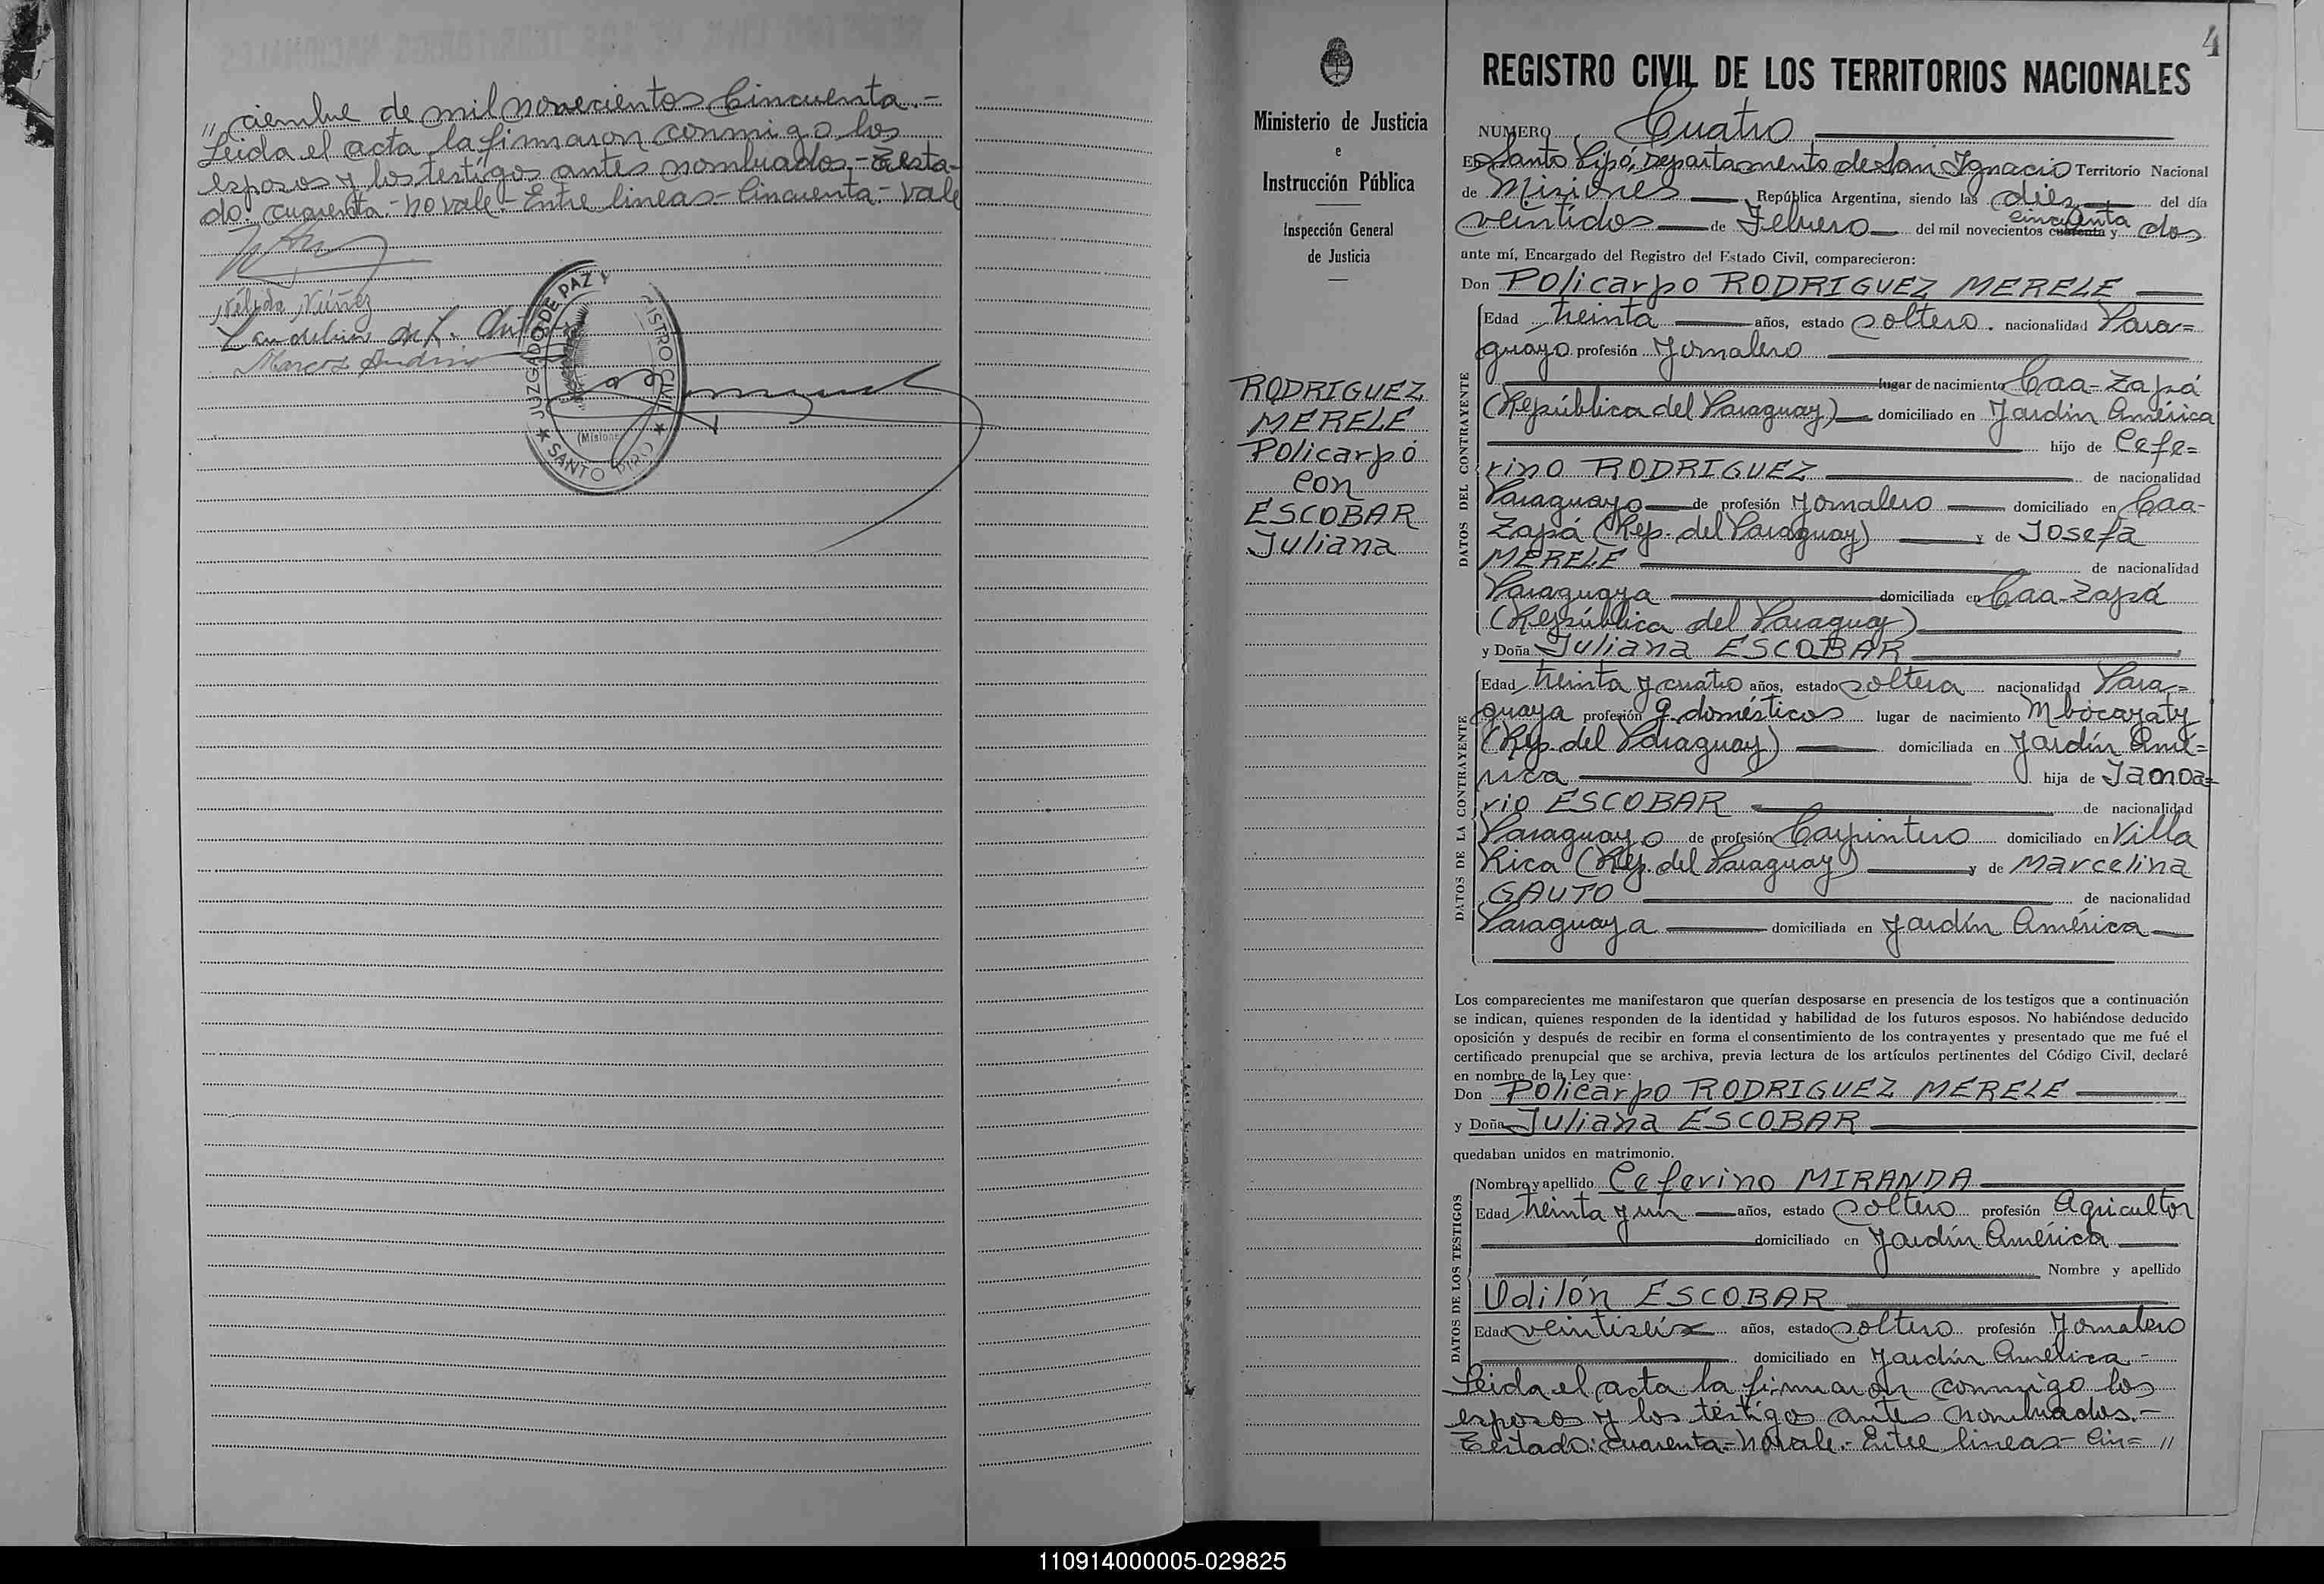 " ciembre de mil novecientos Cincuenta.-
Leida el acta la firmaron conmigo los
esposos y los testigos antes nombrados.- Testa-
do: cuarenta.- no vale.- Entre lineas- Cincuenta.- Vale
Nélida Núñez
Marcos
JUZGADO DE PAZ Y
ISTRO CIVIL
(Misione
★ SANTO PIPO ★
4
Ministerio de Justicia
e
Instrucción Pública
Inspección General
de Justicia
RODRIGUEZ
MERELE
Policarpo
con
ESCOBAR
Juliana
REGISTRO CIVIL DE LOS TERRITORIOS NACIONALES
NUMERO Cuatro
En Santo Pipó, Departamento de San Ignacio Territorio Nacional
de Misiones República Argentina, siendo las diez del día
cincuenta
veintidos de Febrero del mil novecientos cuarenta y dos
ante mí, Encargado del Registro del Estado Civil, comparecieron:
Don Policarpo RODRIGUEZ MERELE
DATOS DEL CONTRAYENTE
Edad treinta años, estado soltero. nacionalidad Para=
guayo profesión Jornalero
lugar de nacimiento Caa-Zapá
(República del Paraguay) domiciliado en Jardín América
hijo de Cefe=
rino RODRIGUEZ de nacionalidad
Paraguayo de profesión Jornalero domiciliado en Caa-
Zapá (Rep. del Paraguay) y de Josefa
MERELE de nacionalidad
Paraguaya domiciliada en Caa-Zapá
(República del Paraguay)
y Doña Juliana ESCOBAR
DATOS DE LA CONTRAYENTE
Edad treinta y cuatro años, estado soltera nacionalidad Para=
guaya profesión q. domésticos lugar de nacimiento Mbocayaty
(Rep. del Paraguay) domiciliada en Jardín Amé=
rica hija de Janoa=
rio ESCOBAR de nacionalidad
Paraguayo de profesión Carpintero domiciliado en Villa
Rica (Rep. del Paraguay) y de Marcelina
GAUTO de nacionalidad
Paraguaya domiciliada en Jardín América
Los comparecientes me manifestaron que querían desposarse en presencia de los testigos que a continuación
se indican, quienes responden de la identidad y habilidad de los futuros esposos. No habiéndose deducido
oposición y después de recibir en forma el consentimiento de los contrayentes y presentado que me fué el
certificado prenupcial que se archiva, previa lectura de los artículos pertinentes del Código Civil, declaré
en nombre de la Ley que:
Don Policarpo RODRIGUEZ MERELE
y Doña Juliana ESCOBAR
quedaban unidos en matrimonio.
DATOS DE LOS TESTIGOS
Nombre y apellido Ceferino MIRANDA
Edad treinta y un años, estado soltero profesión Agricultor
domiciliado en Jardín América
Nombre y apellido
Odilón ESCOBAR
Edad veintiseis años, estado soltero profesión Jornalero
domiciliado en Jardín América -
Leida el acta la firmaron conmigo los
esposos y los testigos antes nombrados.-
Testado: cuarenta.- No vale.- Entre lineas- Cin= "
110914000005-029825